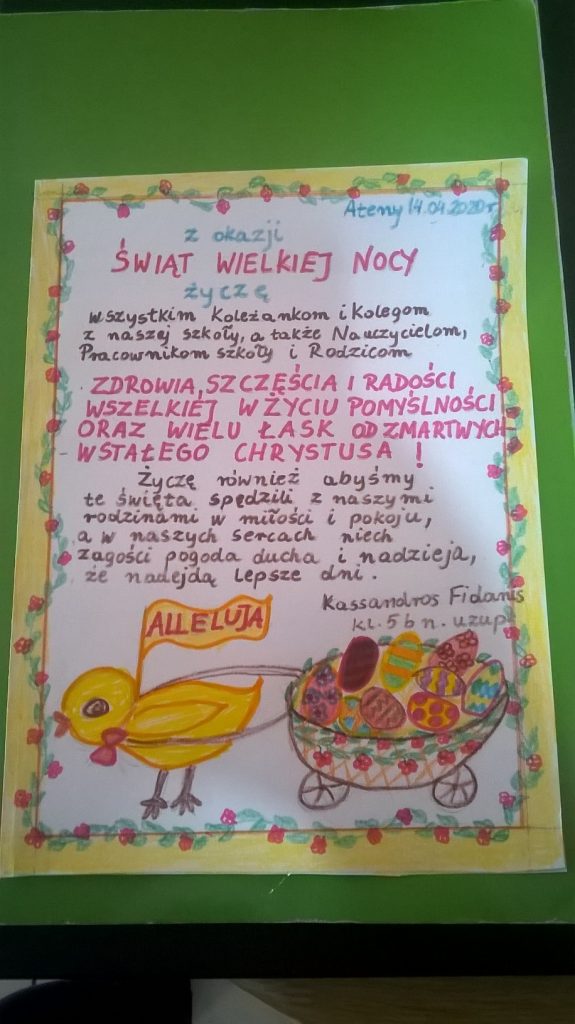 Ateny 14.04.2020r
z okazji
ŚWIĄT WIELKIEJ NOCY
życzę
wszystkim Koleżankom i Kolegom
z naszej szkoły, a także Nauczycielom,
Pracownikom szkoły i Rodzicom
ZDROWIA, SZCZĘŚCIA I RADOŚCI
WSZELKIEJ W ŻYCIU POMYŚLNOŚCI
ORAZ WIELU ŁASK OD ZMARTWYCH-
WSTAŁEGO CHRYSTUSA !
Życzę również abyśmy
te święta spędzili z naszymi
rodzinami w miłości i pokoju,
a w naszych sercach niech
zagości pogoda ducha i nadzieja,
że nadejdą lepsze dni.
Kassandros Fidanis
kl. 5 b n. uzup
ALLELUJA